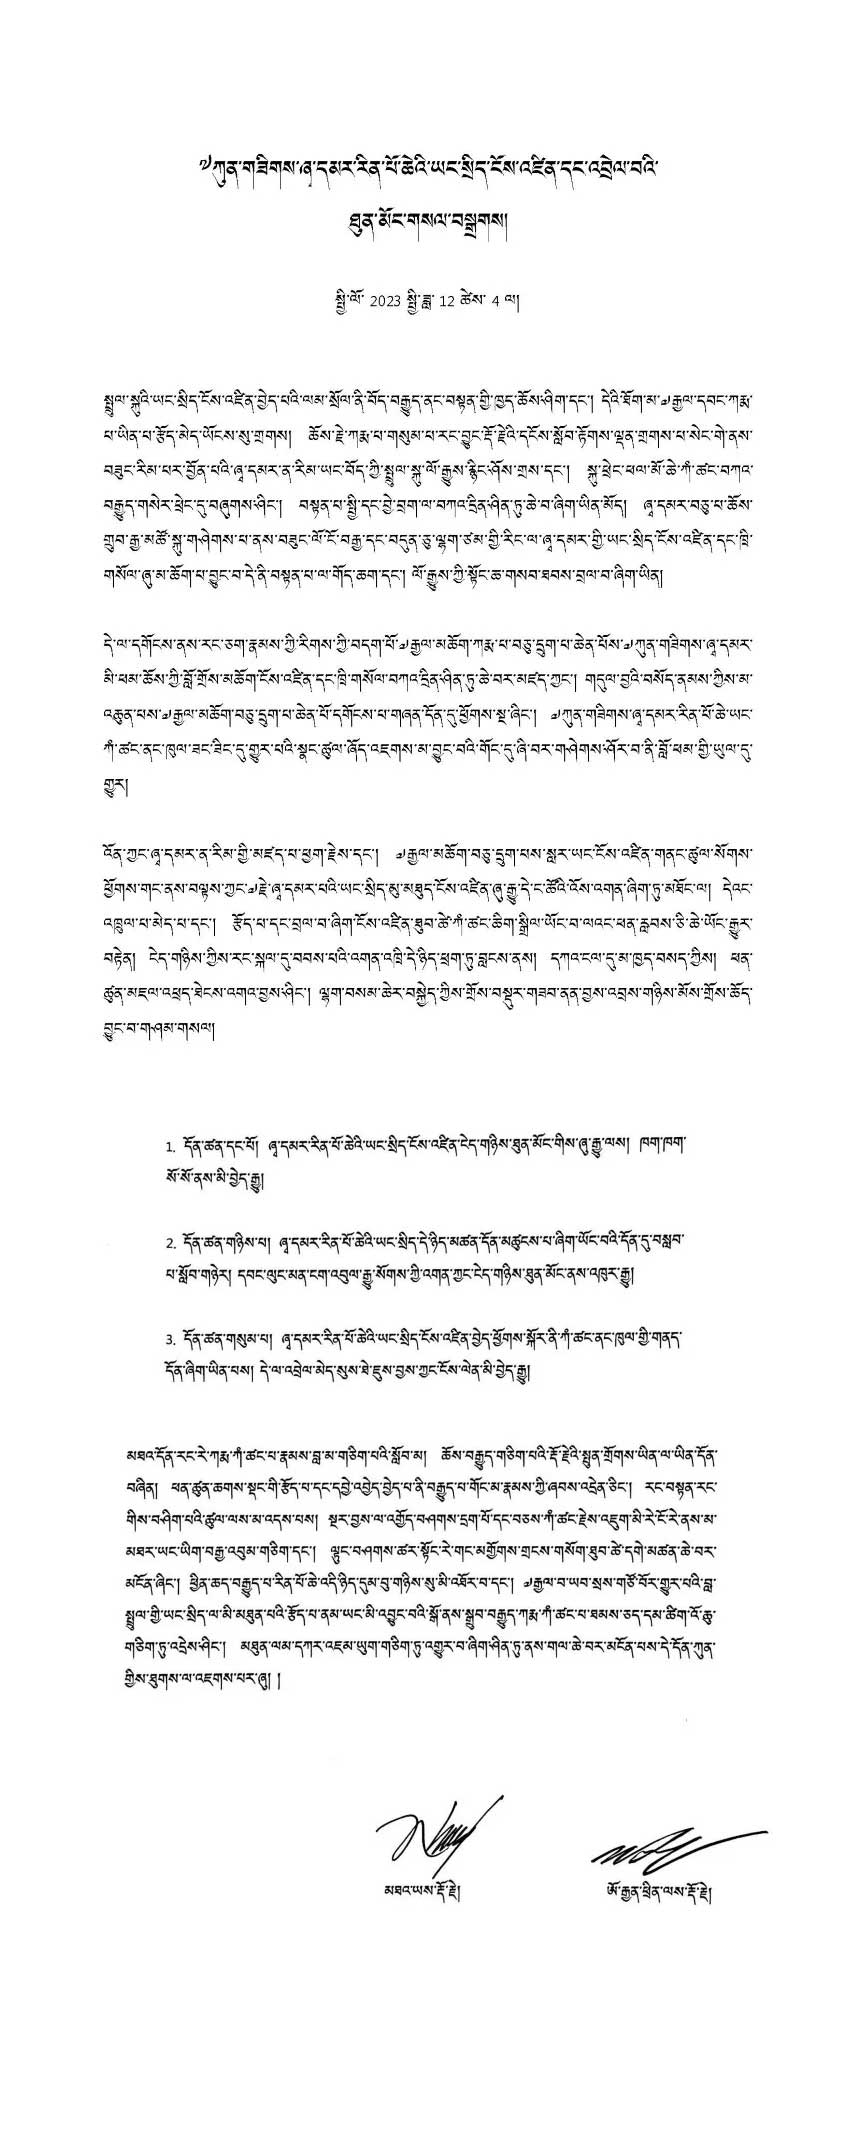 ༧ཀུན་གཟིགས་ཞྭ་དམར་རིན་པོ་ཆེའི་ཡང་སྲིད་ངོས་འཛིན་དང་འབྲེལ་བའི་
ཐུན་མོང་གསལ་བསྒྲགས།
སྤྱི་ལོ་ 2023 སྤྱི་ཟླ་ 12 ཚེས་ 4 ལ།
སྤྲུལ་སྐུའི་ཡང་སྲིད་ངོས་འཛིན་བྱེད་པའི་ལམ་སྲོལ་ནི་བོད་བརྒྱུད་ནང་བསྟན་གྱི་ཁྱད་ཆོས་ཤིག་དང་། དེའི་ཐོག་མ་༧རྒྱལ་དབང་ཀརྨ་
པ་ཡིན་པ་རྩོད་མེད་ཡོངས་སུ་གྲགས། ཆོས་རྗེ་ཀརྨ་པ་གསུམ་པ་རང་བྱུང་རྡོ་རྗེའི་དངོས་སློབ་རྟོགས་ལྡན་གྲགས་པ་སེང་གེ་ནས་
བཟུང་རིམ་པར་བྱོན་པའི་ཞྭ་དམར་ན་རིམ་ཡང་བོད་ཀྱི་སྤྲུལ་སྐུ་ལོ་རྒྱུས་རྙིང་ཤོས་གྲས་དང་། སྐུ་ཕྲེང་ཕལ་མོ་ཆེ་ཀཾ་ཚང་བཀའ་
བརྒྱུད་གསེར་ཕྲེང་དུ་བཞུགས་ཤིང་། བསྟན་པ་སྤྱི་དང་བྱེ་བྲག་ལ་བཀའ་དྲིན་ཤིན་ཏུ་ཆེ་བ་ཞིག་ཡིན་མོད། ཞྭ་དམར་བཅུ་པ་ཆོས་
གྲུབ་རྒྱ་མཚོ་སྐུ་གཤེགས་པ་ནས་བཟུང་ལོ་ངོ་བརྒྱ་དང་བདུན་ཅུ་ལྷག་ཙམ་གྱི་རིང་ལ་ཞྭ་དམར་གྱི་ཡང་སྲིད་ངོས་འཛིན་དང་ཁྲི་
གསོལ་ཞུ་མ་ཆོག་པ་བྱུང་བ་དེ་ནི་བསྟན་པ་ལ་གོད་ཆག་དང་། ལོ་རྒྱུས་ཀྱི་སྟོང་ཆ་གསབ་ཐབས་བྲལ་བ་ཞིག་ཡིན།
དེ་ལ་དགོངས་ནས་རང་ཅག་རྣམས་ཀྱི་རིགས་ཀྱི་བདག་པོ་༧རྒྱལ་མཆོག་ཀརྨ་པ་བཅུ་དྲུག་པ་ཆེན་པོས་༧ཀུན་གཟིགས་ཞྭ་དམར་
མི་ཕམ་ཆོས་ཀྱི་བློ་གྲོས་མཆོག་ངོས་འཛིན་དང་ཁྲི་གསོལ་བཀའ་དྲིན་ཤིན་ཏུ་ཆེ་བར་མཛད་ཀྱང་། གདུལ་བྱའི་བསོད་ནམས་ཀྱིས་མ་
འཆུན་པས་༧རྒྱལ་མཆོག་བཅུ་དྲུག་པ་ཆེན་པོ་དགོངས་པ་གཞན་དོན་དུ་ཕྱོགས་སྔ་ཞིང་། ༧ཀུན་གཟིགས་ཞྭ་དམར་རིན་པོ་ཆེ་ཡང་
ཀཾ་ཚང་ནང་ཁུལ་ཟང་ཟིང་དུ་གྱུར་པའི་སྣང་ཚུལ་ཞོད་འཇགས་མ་བྱུང་བའི་གོང་དུ་ཞི་བར་གཤེགས་ཤོར་བ་ནི་བློ་ཕམ་གྱི་ཡུལ་དུ་
གྱུར།
འོན་ཀྱང་ཞྭ་དམར་ན་རིམ་གྱི་མཛད་པ་ཕྱག་རྗེས་དང་། ༧རྒྱལ་མཆོག་བཅུ་དྲུག་པས་སླར་ཡང་ངོས་འཛིན་གནང་ཚུལ་སོགས་
ཕྱོགས་གང་ནས་བལྟས་ཀྱང་༧རྗེ་ཞྭ་དམར་པའི་ཡང་སྲིད་མུ་མཐུད་ངོས་འཛིན་ཞུ་རྒྱུ་དེ་ང་ཚོའི་འོས་འགན་ཞིག་ཏུ་མཐོང་ལ། དེའང་
འཁྲུལ་པ་མེད་པ་དང་། རྩོད་པ་དང་བྲལ་བ་ཞིག་ངོས་འཛིན་ཐུབ་ཚེ་ཀཾ་ཚང་ཆིག་སྒྲིལ་ཡོང་བ་ལའང་ཕན་རླབས་ཅི་ཆེ་ཡོང་རྒྱུར་
བརྟེན། ངེད་གཉིས་ཀྱིས་རང་སྐལ་དུ་བབས་པའི་འགན་འཁྲི་དེ་ཉིད་ཕྲག་ཏུ་བླངས་ནས། དཀའ་ངལ་དུ་མ་ཁྱད་བསད་ཀྱིས། ཕན་
ཚུན་མཇལ་འཕྲད་ཐེངས་འགའ་བྱས་ཤིང་། ལྷག་བསམ་ཆེར་བསྐྱེད་ཀྱིས་གྲོས་བསྡུར་གཟབ་ནན་བྱས་འབྲས་གཉིས་མོས་གྲོས་ཆོད་
བྱུང་བ་གཤམ་གསལ།
1. དོན་ཚན་དང་པོ། ཞྭ་དམར་རིན་པོ་ཆེའི་ཡང་སྲིད་ངོས་འཛིན་ངེད་གཉིས་ཐུན་མོང་གིས་ཞུ་རྒྱུ་ལས། ཁག་ཁག་
སོ་སོ་ནས་མི་བྱེད་རྒྱུ།
2. དོན་ཚན་གཉིས་པ། ཞྭ་དམར་རིན་པོ་ཆེའི་ཡང་སྲིད་དེ་ཉིད་མཚན་དོན་མཚུངས་པ་ཞིག་ཡོང་བའི་དོན་དུ་བསླབ་
པ་སློབ་གཉེར། དབང་ལུང་མན་ངག་འབུལ་རྒྱུ་སོགས་ཀྱི་འགན་ཀྱང་ངེད་གཉིས་ཐུན་མོང་ནས་འཁུར་རྒྱུ།
3. དོན་ཚན་གསུམ་པ། ཞྭ་དམར་རིན་པོ་ཆེའི་ཡང་སྲིད་ངོས་འཛིན་བྱེད་ཕྱོགས་སྐོར་ནི་ཀཾ་ཚང་ནང་ཁུལ་གྱི་གནད་
དོན་ཞིག་ཡིན་པས། དེ་ལ་འབྲེལ་མེད་སུས་ཐེ་ཇུས་བྱས་ཀྱང་ངོས་ལེན་མི་བྱེད་རྒྱུ།
མཐའ་དོན་རང་རེ་ཀརྨ་ཀཾ་ཚང་པ་རྣམས་བླ་མ་གཅིག་པའི་སློབ་མ། ཆོས་བརྒྱུད་གཅིག་པའི་རྡོ་རྗེའི་སྤུན་གྲོགས་ཡིན་ལ་ཡིན་དོན་
བཞིན། ཕན་ཚུན་ཆགས་སྡང་གི་རྩོད་པ་དང་དབྱེ་འབྱེད་བྱེད་པ་ནི་བརྒྱུད་པ་གོང་མ་རྣམས་ཀྱི་ཞབས་འདྲེན་ཅིང་། རང་བསྟན་རང་
གིས་བཤིག་པའི་ཚུལ་ལས་མ་འདས་པས། སྔར་བྱས་ལ་འགྱོད་བཤགས་དྲག་པོ་དང་བཅས་ཀཾ་ཚང་རྗེས་འཇུག་མི་རེ་ངོ་རེ་ནས་མ་
མཐར་ཡང་ཡིག་བརྒྱ་འབུམ་གཅིག་དང་། ལྟུང་བཤགས་ཚར་སྟོང་རེ་གང་མགྱོགས་གྲངས་གསོག་ཐུབ་ཚེ་དགེ་མཚན་ཆེ་བར་
མངོན་ཞིང་། ཕྱིན་ཆད་བརྒྱུད་པ་རིན་པོ་ཆེ་འདི་ཉིད་དུམ་བུ་གཉིས་སུ་མི་འཐོར་བ་དང་། ༧རྒྱལ་བ་ཡབ་སྲས་གཙོ་བོར་གྱུར་པའི་བླ་
སྤྲུལ་གྱི་ཡང་སྲིད་ལ་མི་མཐུན་པའི་རྩོད་པ་ནམ་ཡང་མི་འབྱུང་བའི་སྒོ་ནས་སྒྲུབ་བརྒྱུད་ཀརྨ་ཀཾ་ཚང་པ་ཐམས་ཅད་དམ་ཚིག་འོ་ཆུ་
གཅིག་ཏུ་འདྲེས་ཤིང་། མཐུན་ལམ་དཀར་འཇམ་ཡུག་གཅིག་ཏུ་འགྱུར་བ་ཞིག་ཤིན་ཏུ་ནས་གལ་ཆེ་བར་མངོན་པས་དེ་དོན་ཀུན་
གྱིས་ཐུགས་ལ་འཇགས་པར་ཞུ། །
མཐའ་ཡས་རྡོ་རྗེ། ཨོ་རྒྱན་ཕྲིན་ལས་རྡོ་རྗེ།